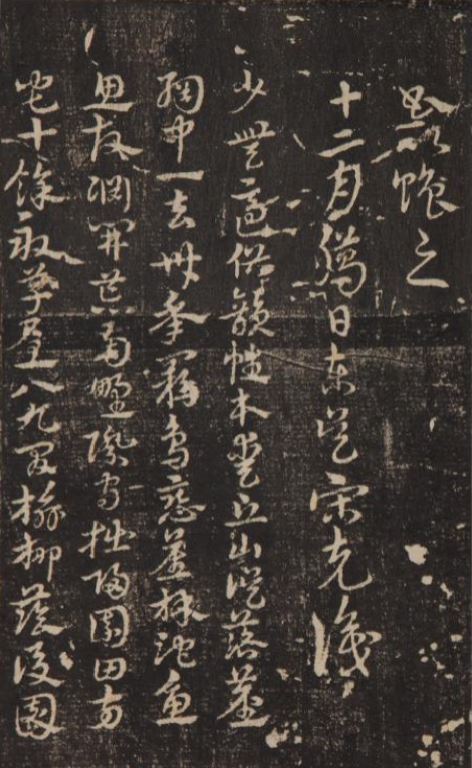 之
十二月臈日東吳宋克識
少無適俗韻性本愛丘山誤落塵
網中一去卅年羈鳥戀舊林池魚
思故淵開荒南野際守拙歸園田方
宅十餘畝草屋八九間榆柳蔭後園